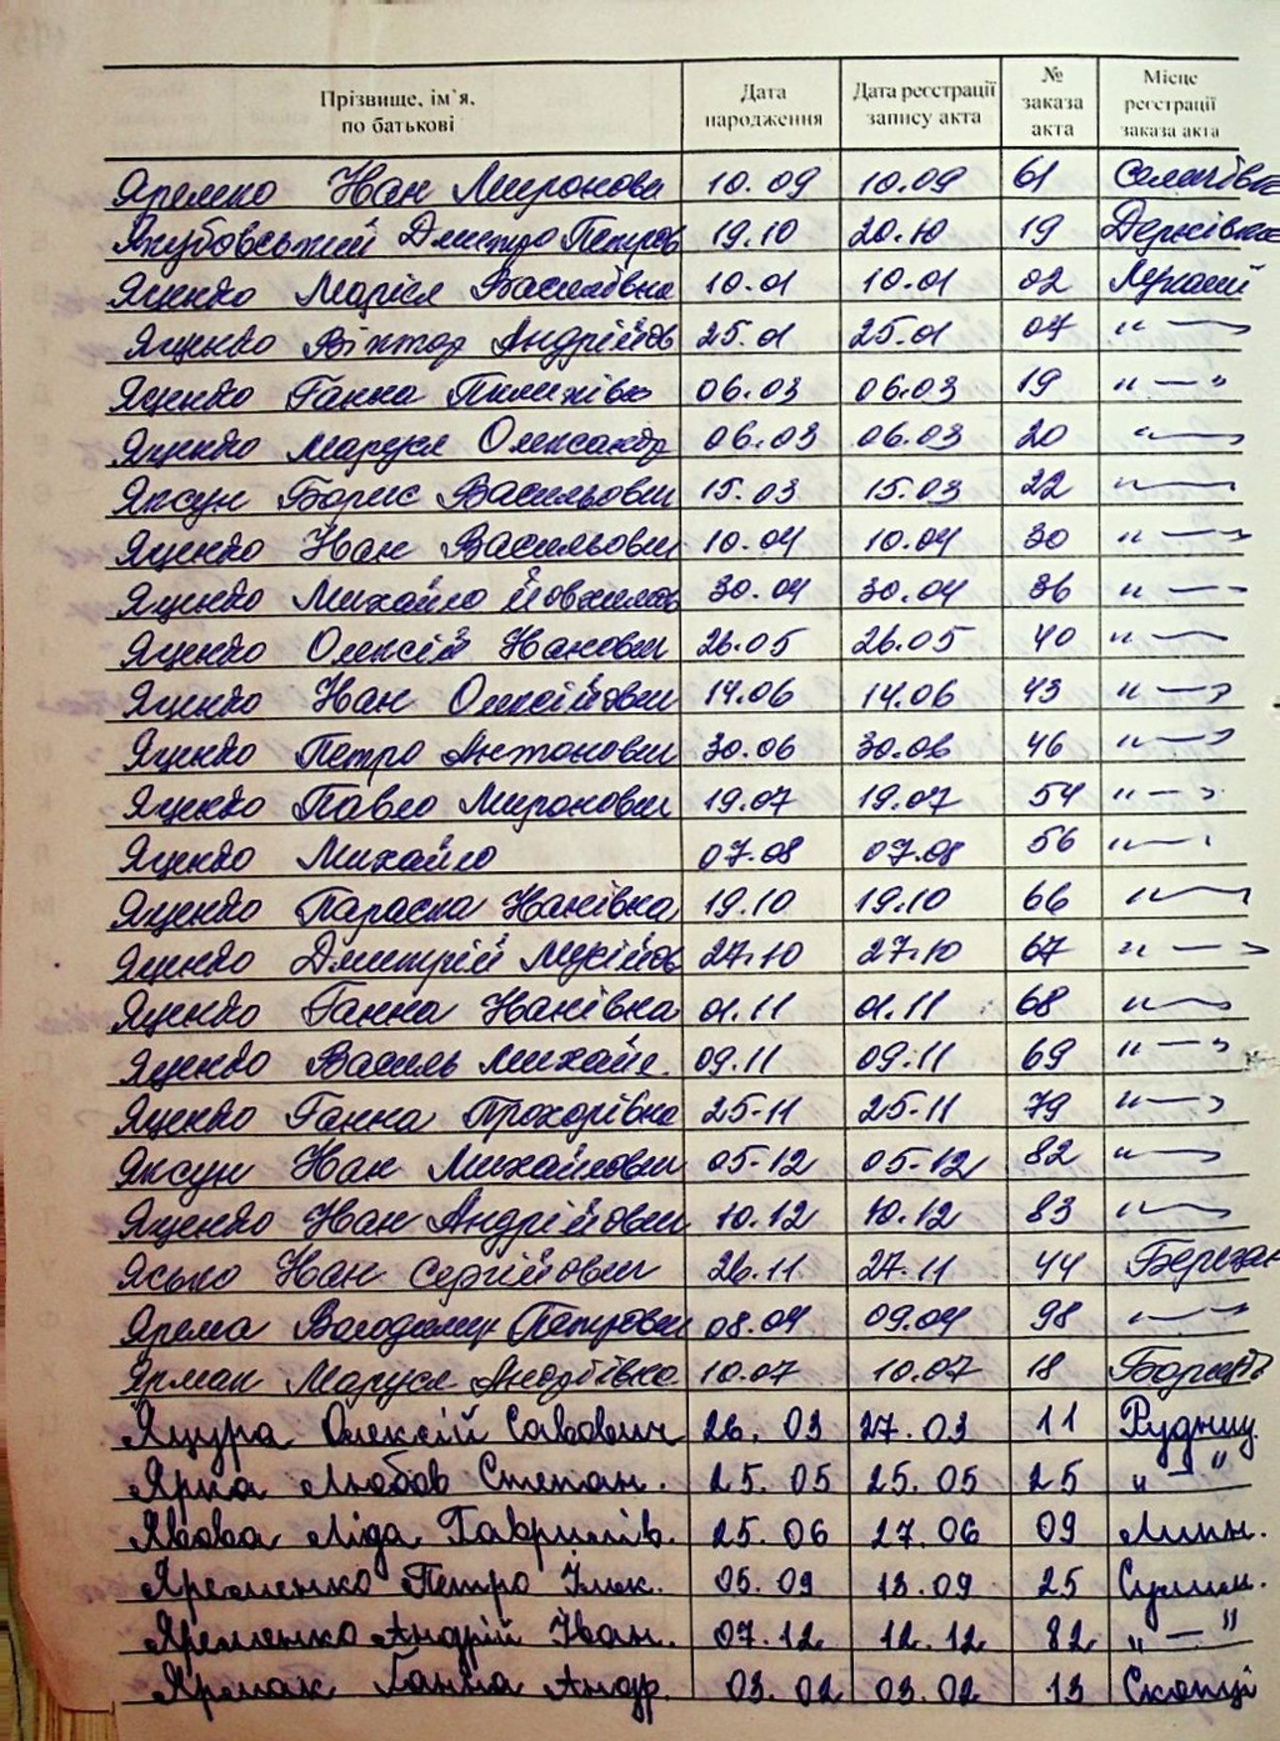 Прізвище, ім`я, по батькові Дата народження Дата реєстрації запису акта № заказа акта Місце реєстрації заказа акта
Яремко Іван Миронова 10.09 10.09 61
Якубовський Дмитро Петров 19.10 20.10 19
Яценко Марія Василівна 10.01 10.01 02
Яценко Віктор Андрійов 25.01 25.01 07 " —
Яценко Ганна Пилипівн 06.03 06.03 19 " — "
Яценко Маруся Олександр 06.03 06.03 20 " —
Яксун Борис Васильович 15.03 15.03 22 " —
Яценко Іван Васильович 10.04 10.04 30 " —
Яценко Михайло 30.04 30.04 36 " —
Яценко Олексій Іванович 26.05 26.05 40 " —
Яценко Іван Олексійович 14.06 14.06 43 " —
Яценко Петро Антонович 30.06 30.06 46 " —
Яценко Павло Миронович 19.07 19.07 54 " —
Яценко Михайло 07.08 07.08 56 " —
Яценко Параска Іванівна 19.10 19.10 66 " —
Яценко Дмитрій Мусійов 27.10 27.10 67 " —
Яценко Ганна Іванівна 01.11 01.11 68 " —
Яценко Василь Михайл. 09.11 09.11 69 " — "
Яценко Ганна Прохорівна 25-11 25-11 79 " —
Яксун Іван Михайлович 05-12 05-12 82 " —
Яценко Іван Андрійович 10.12 10.12 83 " —
Ясько Іван Сергійович 26.11 27.11 44 Березан
Ярема Володимир Петрович 08.04 09.04 98 " —
Ярмак Маруся Андріївна 10.07 10.07 18
Яцура Олексій Савович 26. 03 27. 03 11 Рудниц.
Ярка Любов Степан. 25. 05 25. 05 25 " — "
Ліда Гаврилів. 25. 06 27. 06 09 Лихн.
Яременко Петро 05. 09 13.09 25 Сулим.
Яременко Андрій Іван. 07.12 12.12 82 " — "
Ярмак Ганна Андр. 03. 02 03. 02 13 Скопці